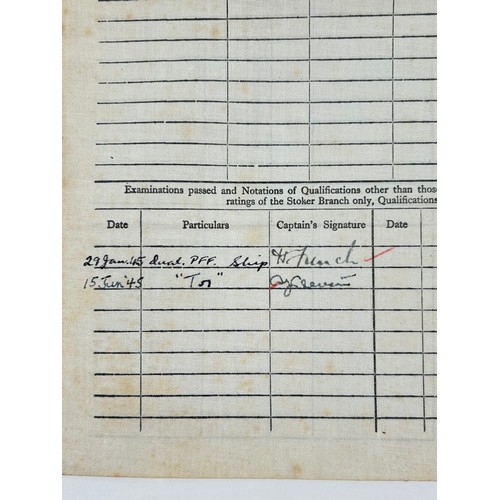 Examinations passed and Notations of Qualifications other than thos
ratings of the Stoker Branch only, Qualifications
Date Particulars Captain's Signature Date
29 Jan. 45 dual. PFF. Ship H. French
15 Jun '45